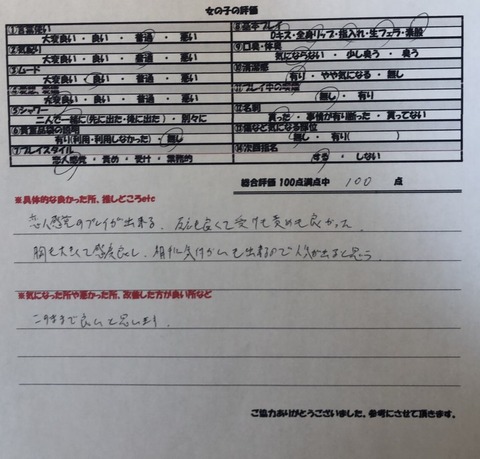 女の子の評価
①言葉使い
大変良い ・ 良い ・ 普通 ・ 悪い
②気配り
大変良い ・ 良い ・ 普通 ・ 悪い
③ムード
大変良い ・ 良い ・ 普通 ・ 悪い
大変良い ・ 良い ・ 普通 ・ 悪い
⑤シャワー
二人で一緒に(先に出た・後に出た) ・ 別々に
⑥貴重品袋の説明
有り(利用・利用しなかった) ・ 無し
⑦プレイスタイル
恋人感覚 ・ 責め ・ 受け ・ 業務的
⑧基本プレイ
Dキス・全身リップ・指入れ・生フェラ・素股
⑨口臭・体臭
気にならない ・ 少し臭う ・ 臭う
⑩清潔感
有り ・ やや気になる ・ 無し
無し ・ 有り
⑫名刺
貰った ・ 事情が有り断った ・ 貰ってない
⑬傷など気になる部位
無し ・ 有り( )
⑭次回指名
する ・ しない
総合評価 100点満点中 100 点
※具体的な良かった所、推しどころetc
恋人感覚のプレイが出来る。反応も良くて受けも責めも良かった
胸も大きくて感度良し、相手に気付かいも出来るので人気が出ると思う
※気になった所や悪かった所、改善した方が良い所など
このままで良いと思います。
ご協力ありがとうございました。参考にさせて頂きます。